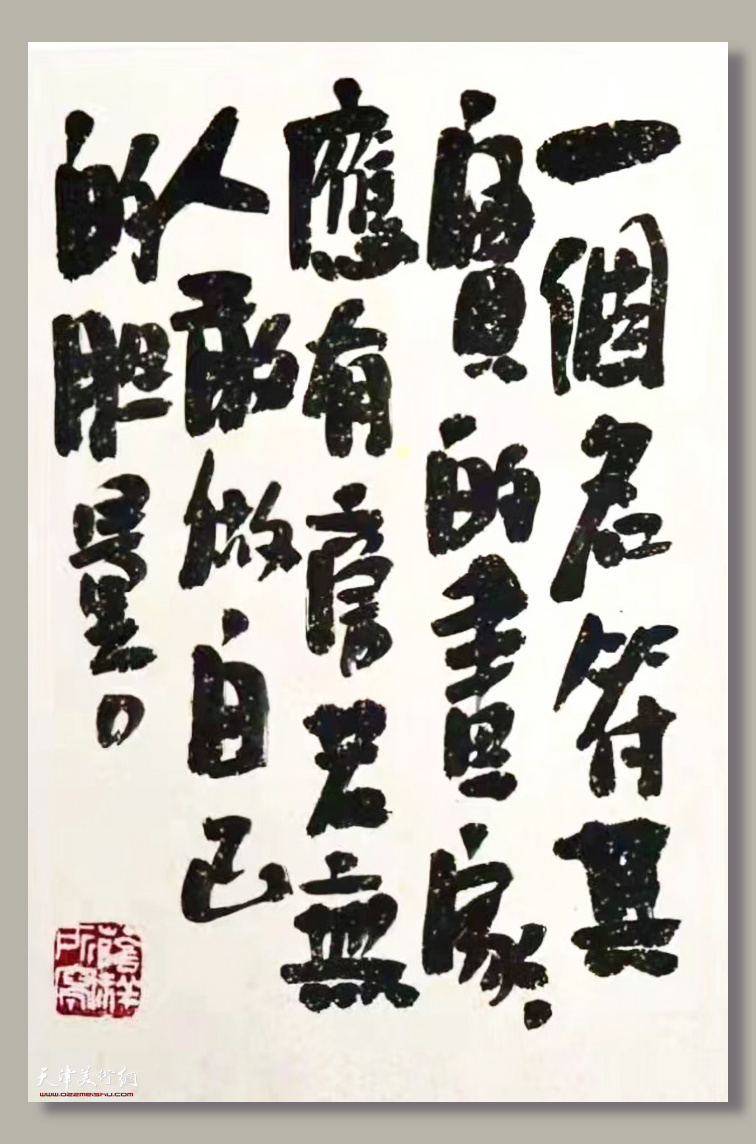 一個名符其
實的畫家、
應有旁若無
人敢做自己
的胆量。
天津美術網
www.022meishu.com